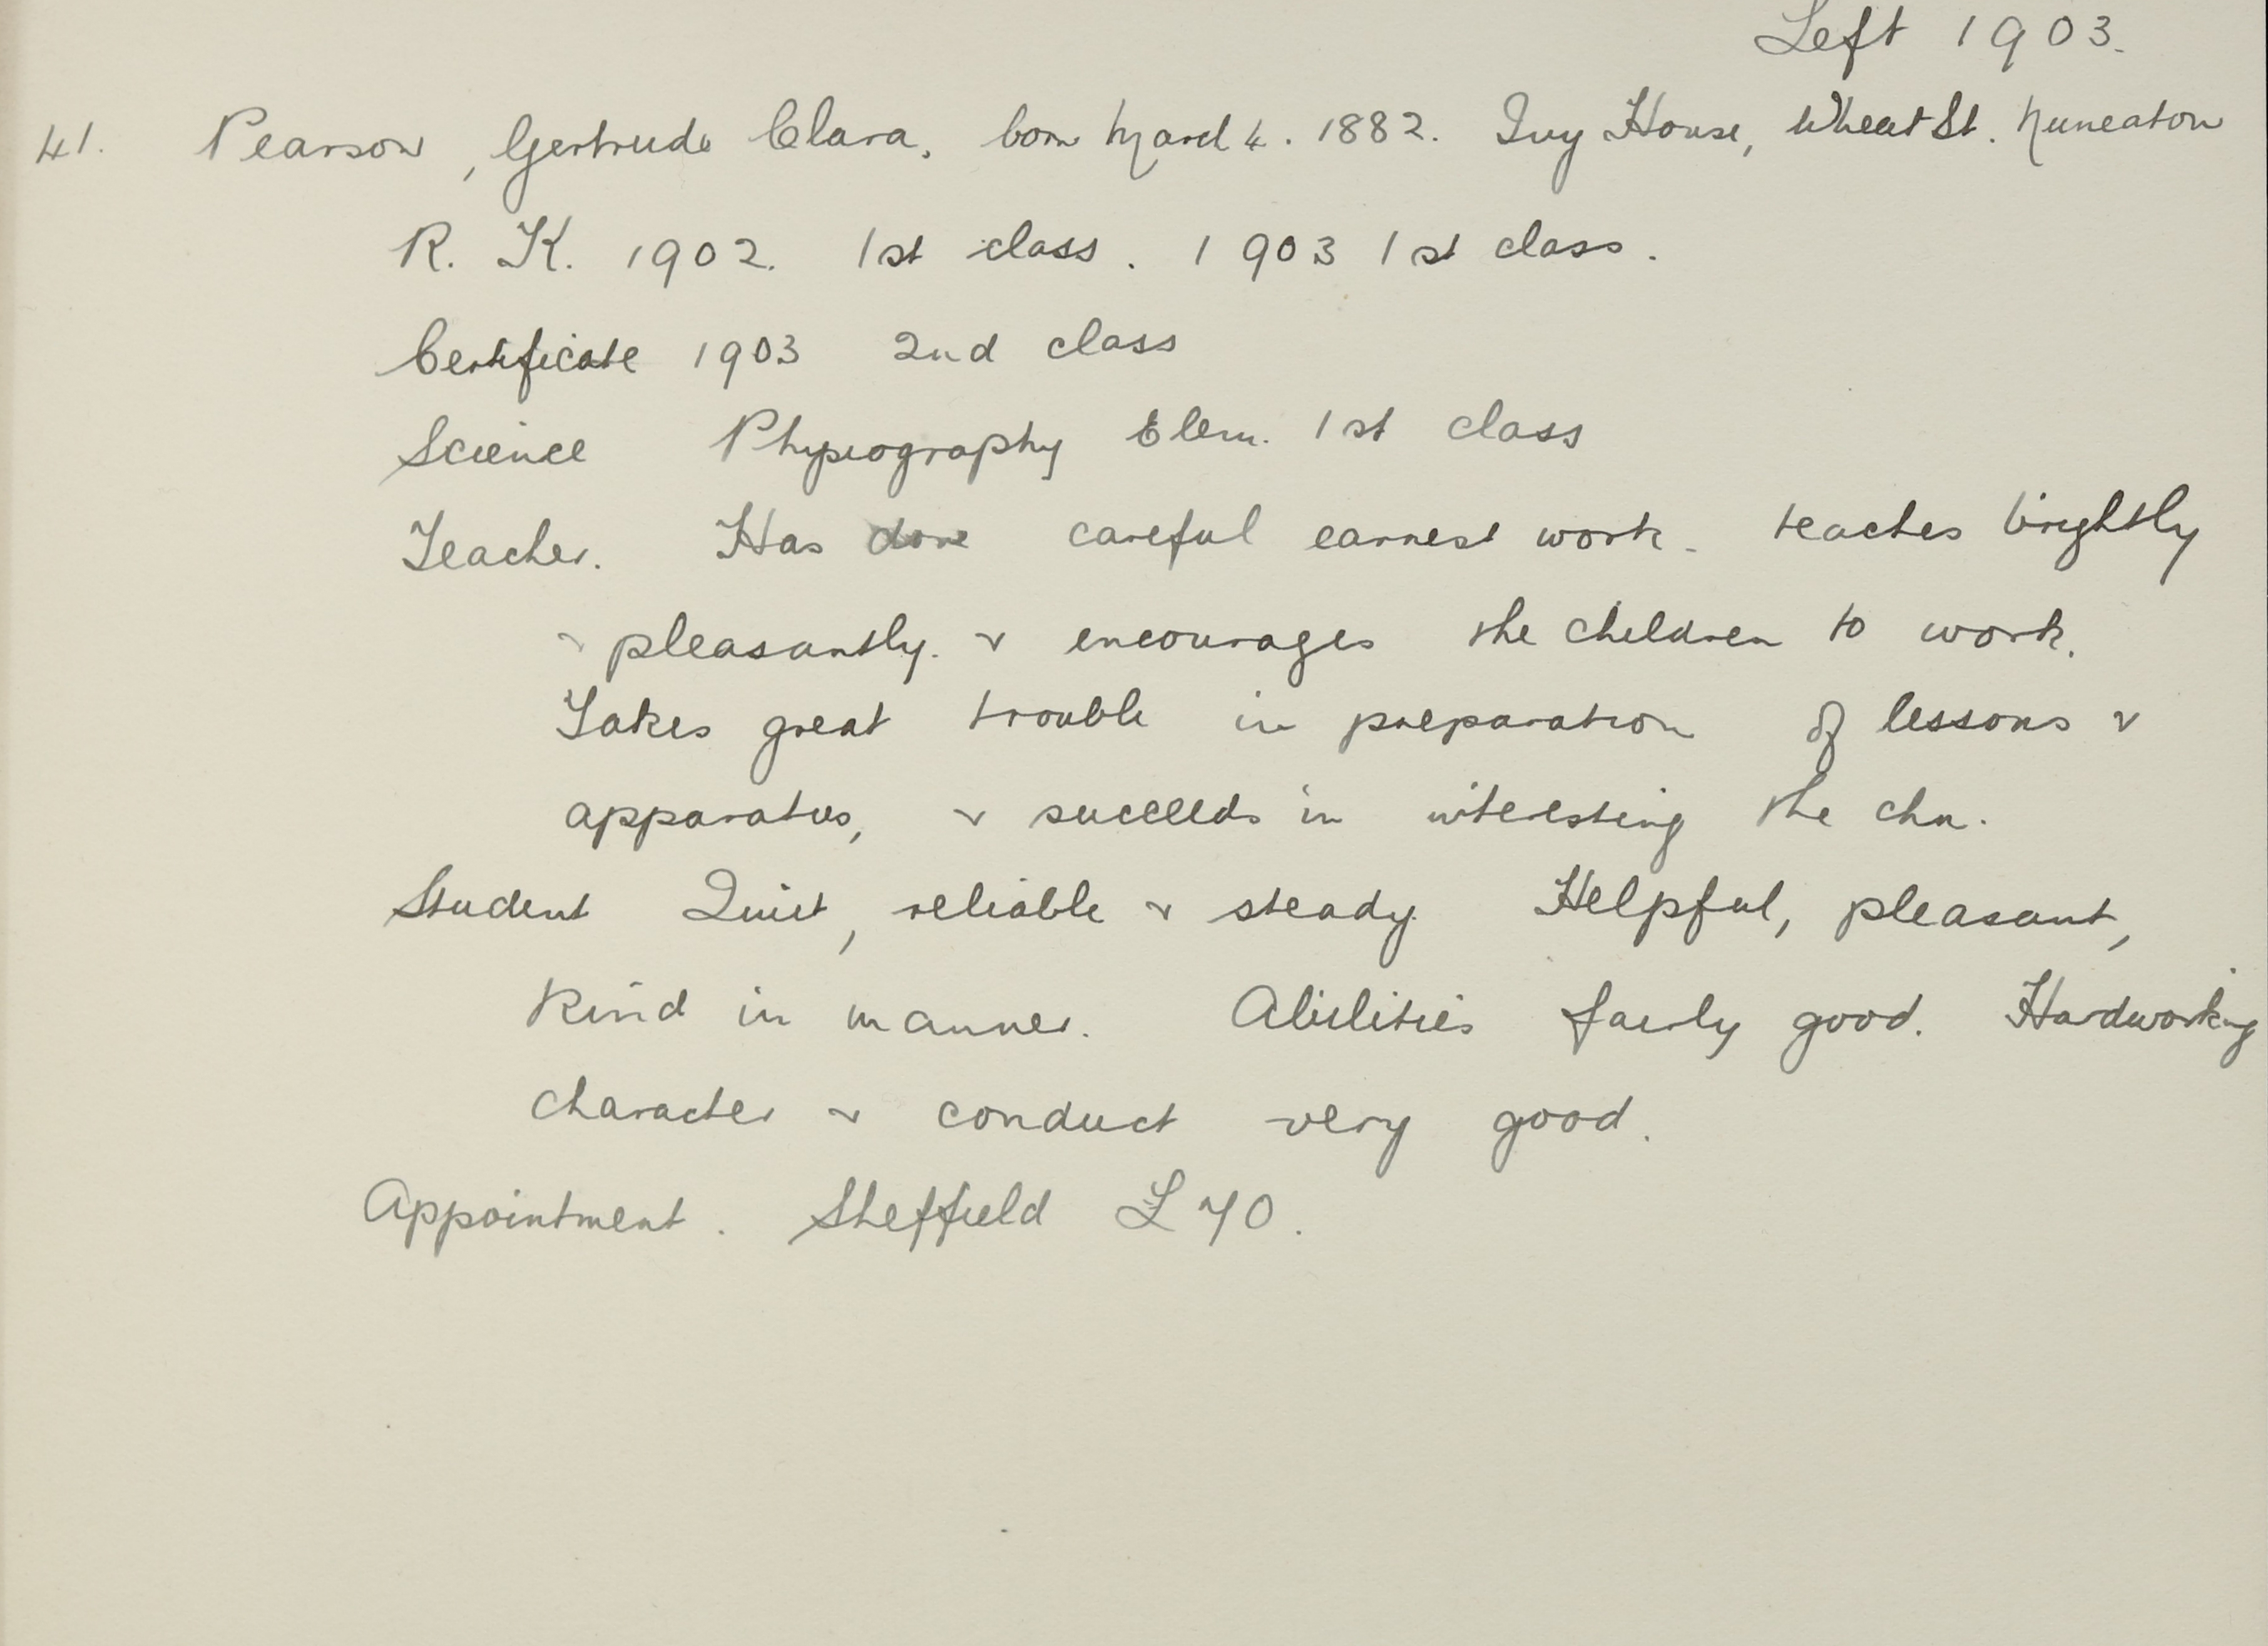 Left 1903.
41. Pearson, Gertrude Clara, born March 4. 1882. Ivy House, Wheat St. Nuneaton
R. K. 1902. 1st class. 1903 1st class.
Certificate 1903 2nd class
Science Physiography Elem. 1st class
Teacher. Has done careful earnest work. teaches brightly
& pleasantly. & encourages the children to work.
Takes great trouble in preparation of lessons &
apparatus, & succeeds in interesting the chn.
Student Quiet, reliable & steady. Helpful, pleasant,
kind in manner. Abilities fairly good. Hardworking
character & conduct very good.
Appointment. Sheffield £70.